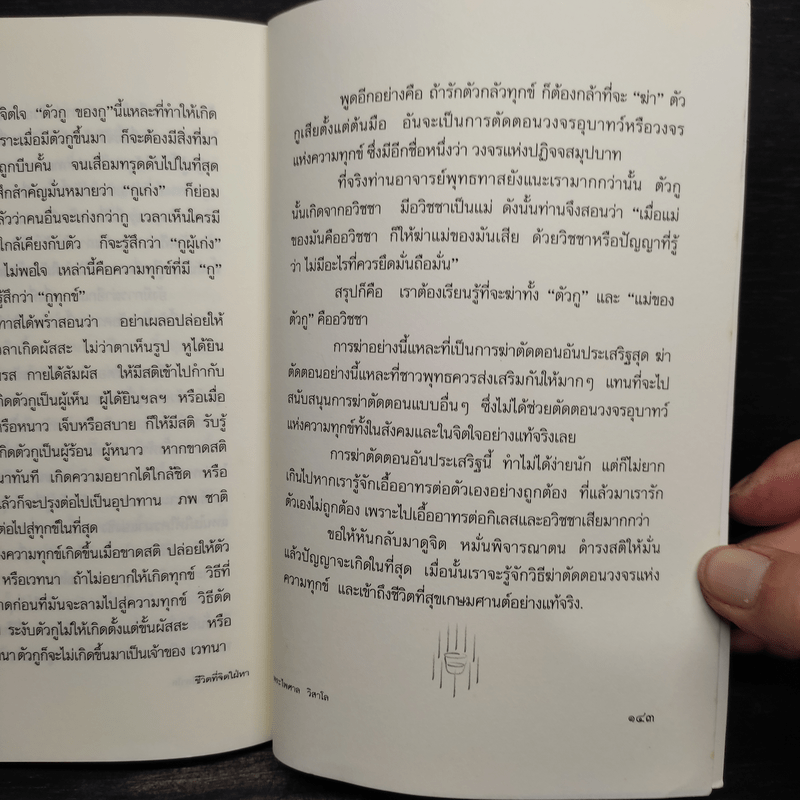 จิตใจ “ตัวกู ของกู”นี้แหละที่ทำให้เกิด
ราะเมื่อมีตัวกูขึ้นมา ก็จะต้องมีสิ่งที่มา
ถูกบีบคั้น จนเสื่อมทรุดดับไปในที่สุด
สึกสำคัญมั่นหมายว่า “กูเก่ง” ก็ย่อม
ลัวว่าคนอื่นจะเก่งกว่ากู เวลาเห็นใครมี
ใกล้เคียงกับตัว ก็จะรู้สึกว่า “กูผู้เก่ง”
ไม่พอใจ เหล่านี้คือความทุกข์ที่มี “กู”
รู้สึกว่า “กูทุกข์”
ทาสได้พร่ำสอนว่า อย่าเผลอปล่อยให้
ลาเกิดผัสสะ ไม่ว่าตาเห็นรูป หูได้ยิน
รส กายได้สัมผัส ให้มีสติเข้าไปกำกับ
กิดตัวกูเป็นผู้เห็น ผู้ได้ยินฯลฯ หรือเมื่อ
รือหนาว เจ็บหรือสบาย ก็ให้มีสติ รับรู้
กิดตัวกูเป็นผู้ร้อน ผู้หนาว หากขาดสติ
นาทันที เกิดความอยากได้ใกล้ชิด หรือ
แล้วก็จะปรุงต่อไปเป็นอุปาทาน ภพ ชาติ
ต่อไปสู่ทุกข์ในที่สุด
งความทุกข์เกิดขึ้นเมื่อขาดสติ ปล่อยให้ตัว
หรือเวทนา ถ้าไม่อยากให้เกิดทุกข์ วิธีที่
าดก่อนที่มันจะลามไปสู่ความทุกข์ วิธีตัด
ระงับตัวกูไม่ให้เกิดตั้งแต่ขั้นผัสสะ หรือ
นาตัวกูก็จะไม่เกิดขึ้นมาเป็นเจ้าของ เวทนา
ชีวิตที่จิตใฝ่หา
พูดอีกอย่างคือ ถ้ารักตัวกลัวทุกข์ ก็ต้องกล้าที่จะ “ฆ่า” ตัว
กูเสียตั้งแต่ต้นมือ อันจะเป็นการตัดตอนวงจรอุบาทว์หรือวงจร
แห่งความทุกข์ ซึ่งมีอีกชื่อหนึ่งว่า วงจรแห่งปฏิจจสมุปบาท
ที่จริงท่านอาจารย์พุทธทาสยังแนะเรามากกว่านั้น ตัวกู
นั้นเกิดจากอวิชชา มีอวิชชาเป็นแม่ ดังนั้นท่านจึงสอนว่า “เมื่อแม่
ของมันคืออวิชชา ก็ให้ฆ่าแม่ของมันเสีย ด้วยวิชชาหรือปัญญาที่รู้
ว่า ไม่มีอะไรที่ควรยึดมั่นถือมั่น”
สรุปก็คือ เราต้องเรียนรู้ที่จะฆ่าทั้ง “ตัวกู” และ “แม่ของ
ตัวกู” คืออวิชชา
การฆ่าอย่างนี้แหละที่เป็นการฆ่าตัดตอนอันประเสริฐสุด ฆ่า
ตัดตอนอย่างนี้แหละที่ชาวพุทธควรส่งเสริมกันให้มากๆ แทนที่จะไป
สนับสนุนการฆ่าตัดตอนแบบอื่นๆ ซึ่งไม่ได้ช่วยตัดตอนวงจรอุบาทว์
แห่งความทุกข์ทั้งในสังคมและในจิตใจอย่างแท้จริงเลย
การฆ่าตัดตอนอันประเสริฐนี้ ทำไม่ได้ง่ายนัก แต่ก็ไม่ยาก
เกินไปหากเรารู้จักเอื้ออาทรต่อตัวเองอย่างถูกต้อง ที่แล้วมาเรารัก
ตัวเองไม่ถูกต้อง เพราะไปเอื้ออาทรต่อกิเลสและอวิชชาเสียมากกว่า
ขอให้หันกลับมาดูจิต หมั่นพิจารณาตน ดำรงสติให้มั่น
แล้วปัญญาจะเกิดในที่สุด เมื่อนั้นเราจะรู้จักวิธีฆ่าตัดตอนวงจรแห่ง
ความทุกข์ และเข้าถึงชีวิตที่สุขเกษมศานต์อย่างแท้จริง.
พระไพศาล วิสาโล
๑๔๓